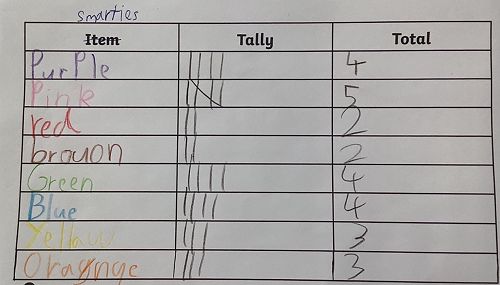 smarties
Item Tally Total
PurPle 4
Pink 5
red 2
brouon 2
Green 4
Blue 4
Yellow 3
Oraynge 3